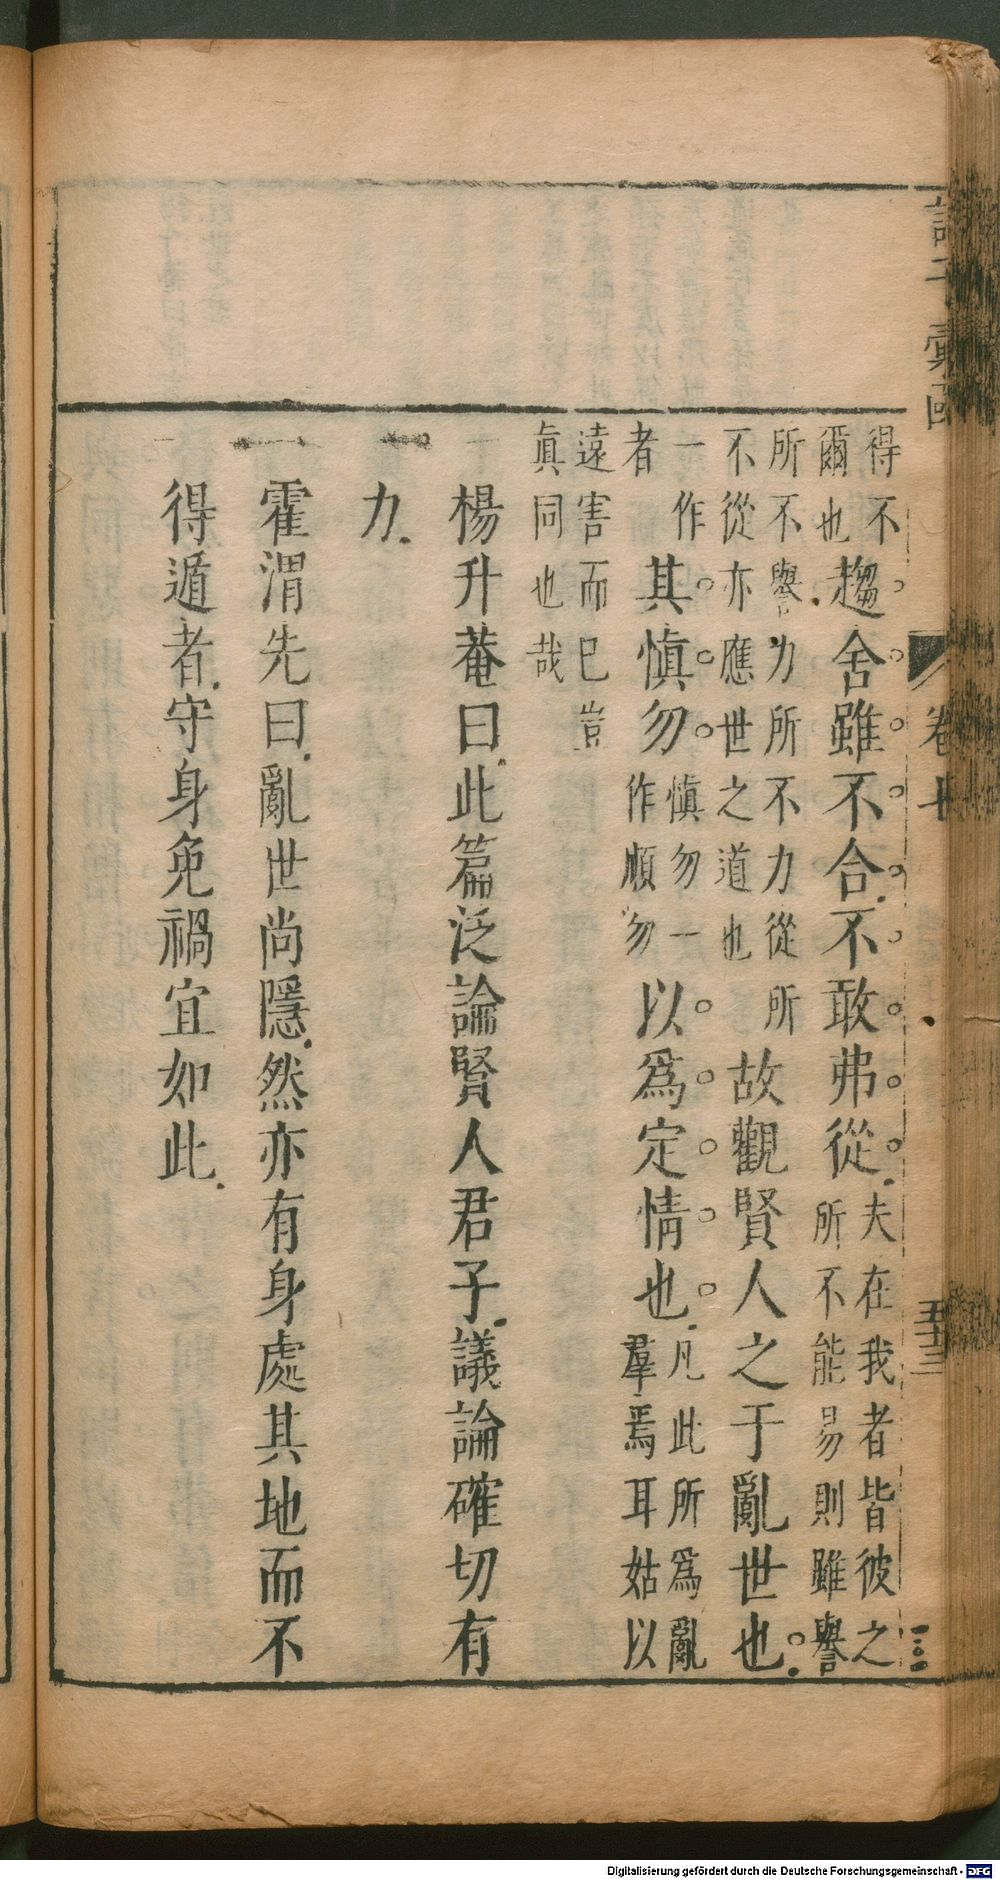 諸子彙函 卷十 五十三
得不爾也趨舍雖不合不敢弗從夫在我者皆彼之所不能易則雖譽
所不譽力所不力從所不從亦應世之道也故觀賢人之于亂世也
一作者其慎勿慎勿一作順勿以爲定情也凡此所爲亂羣焉耳姑以
遠害而已豈眞同也哉
楊升菴曰此篇泛論賢人君子議論確切有
力
霍渭先曰亂世尚隱然亦有身處其地而不
得遁者守身免禍宜如此
Digitalisierung gefördert durch die Deutsche Forschungsgemeinschaft - DFG